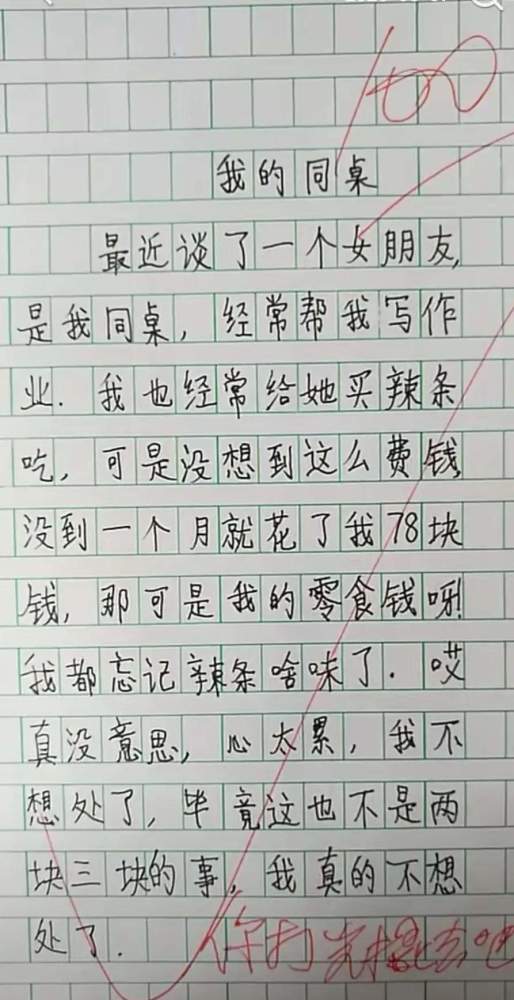 我的同桌
最近谈了一个女朋友,
是我同桌，经常帮我写作
业.我也经常给她买辣条
吃，可是没想到这么费钱,
没到一个月就花了我78块
钱，那可是我的零食钱呀!
我都忘记辣条啥味了.哎
真没意思，心太累，我不
想处了，毕竟这也不是两
块三块的事，我真的不想
处了.
你打